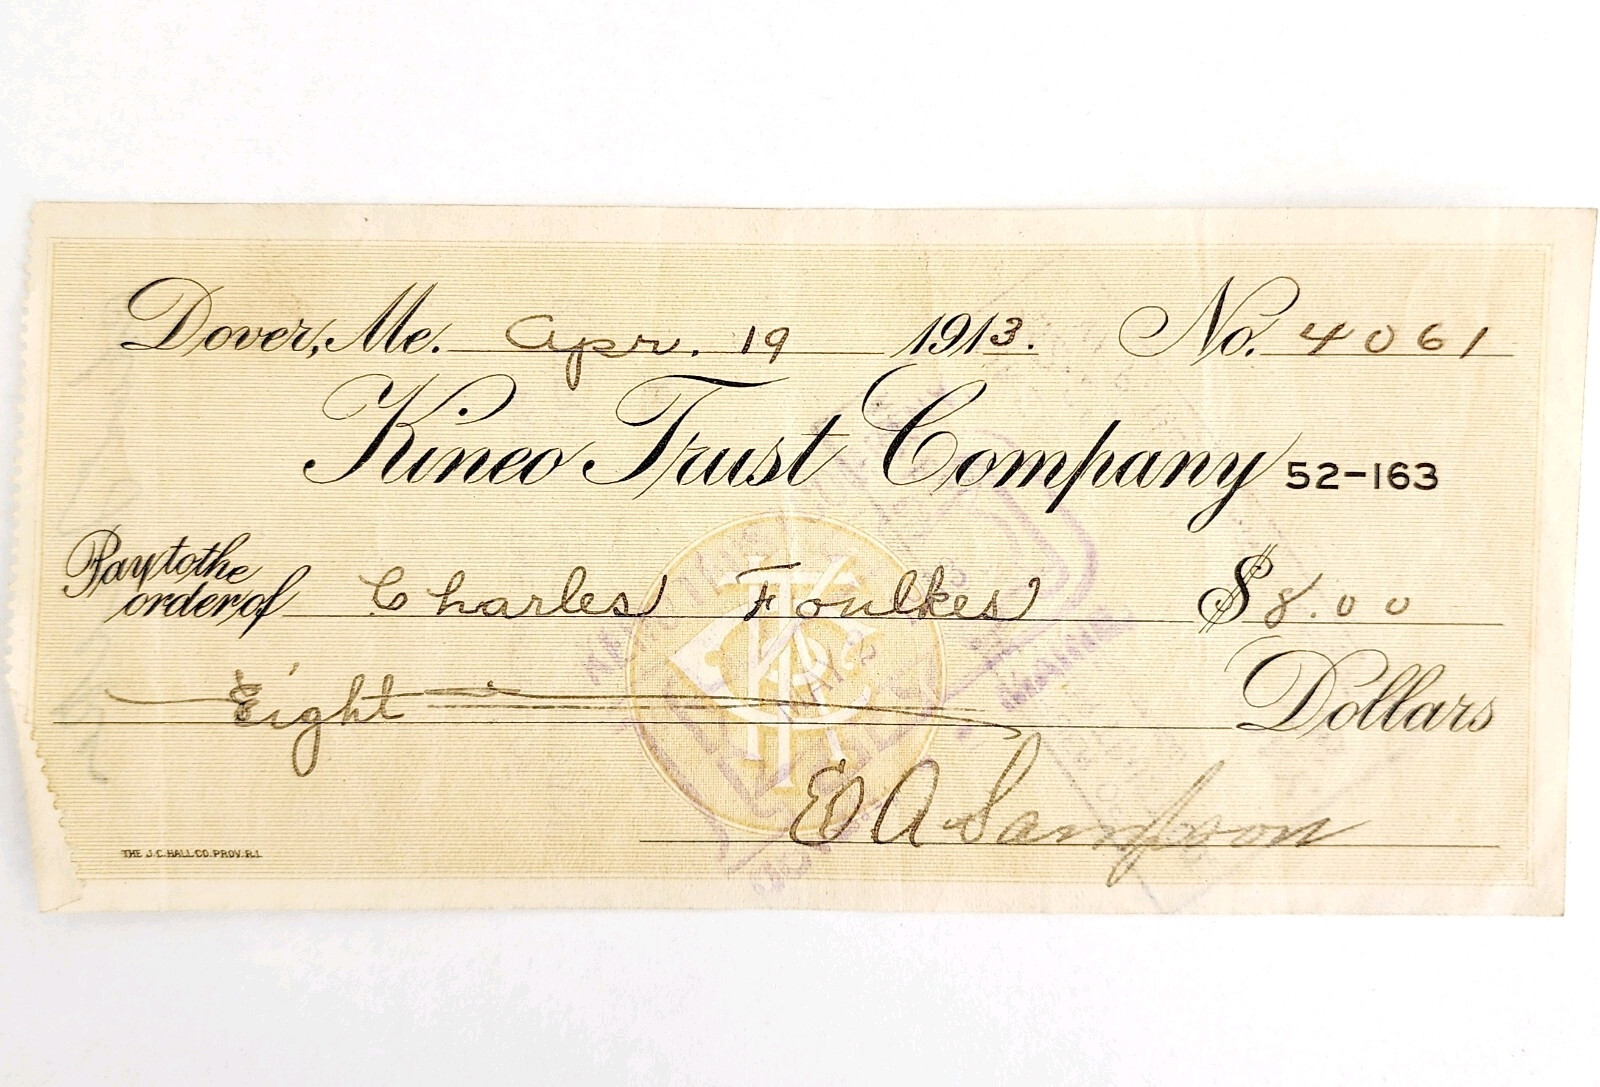 Dover, Me. Apr. 19 1913. No. 4061
Kineo Trust Company 52-163
Pay to the
order of Charles Foulkes $8.00
Eight Dollars
E A Sampson
THE J.C. HALL CO. PROV. R.I.